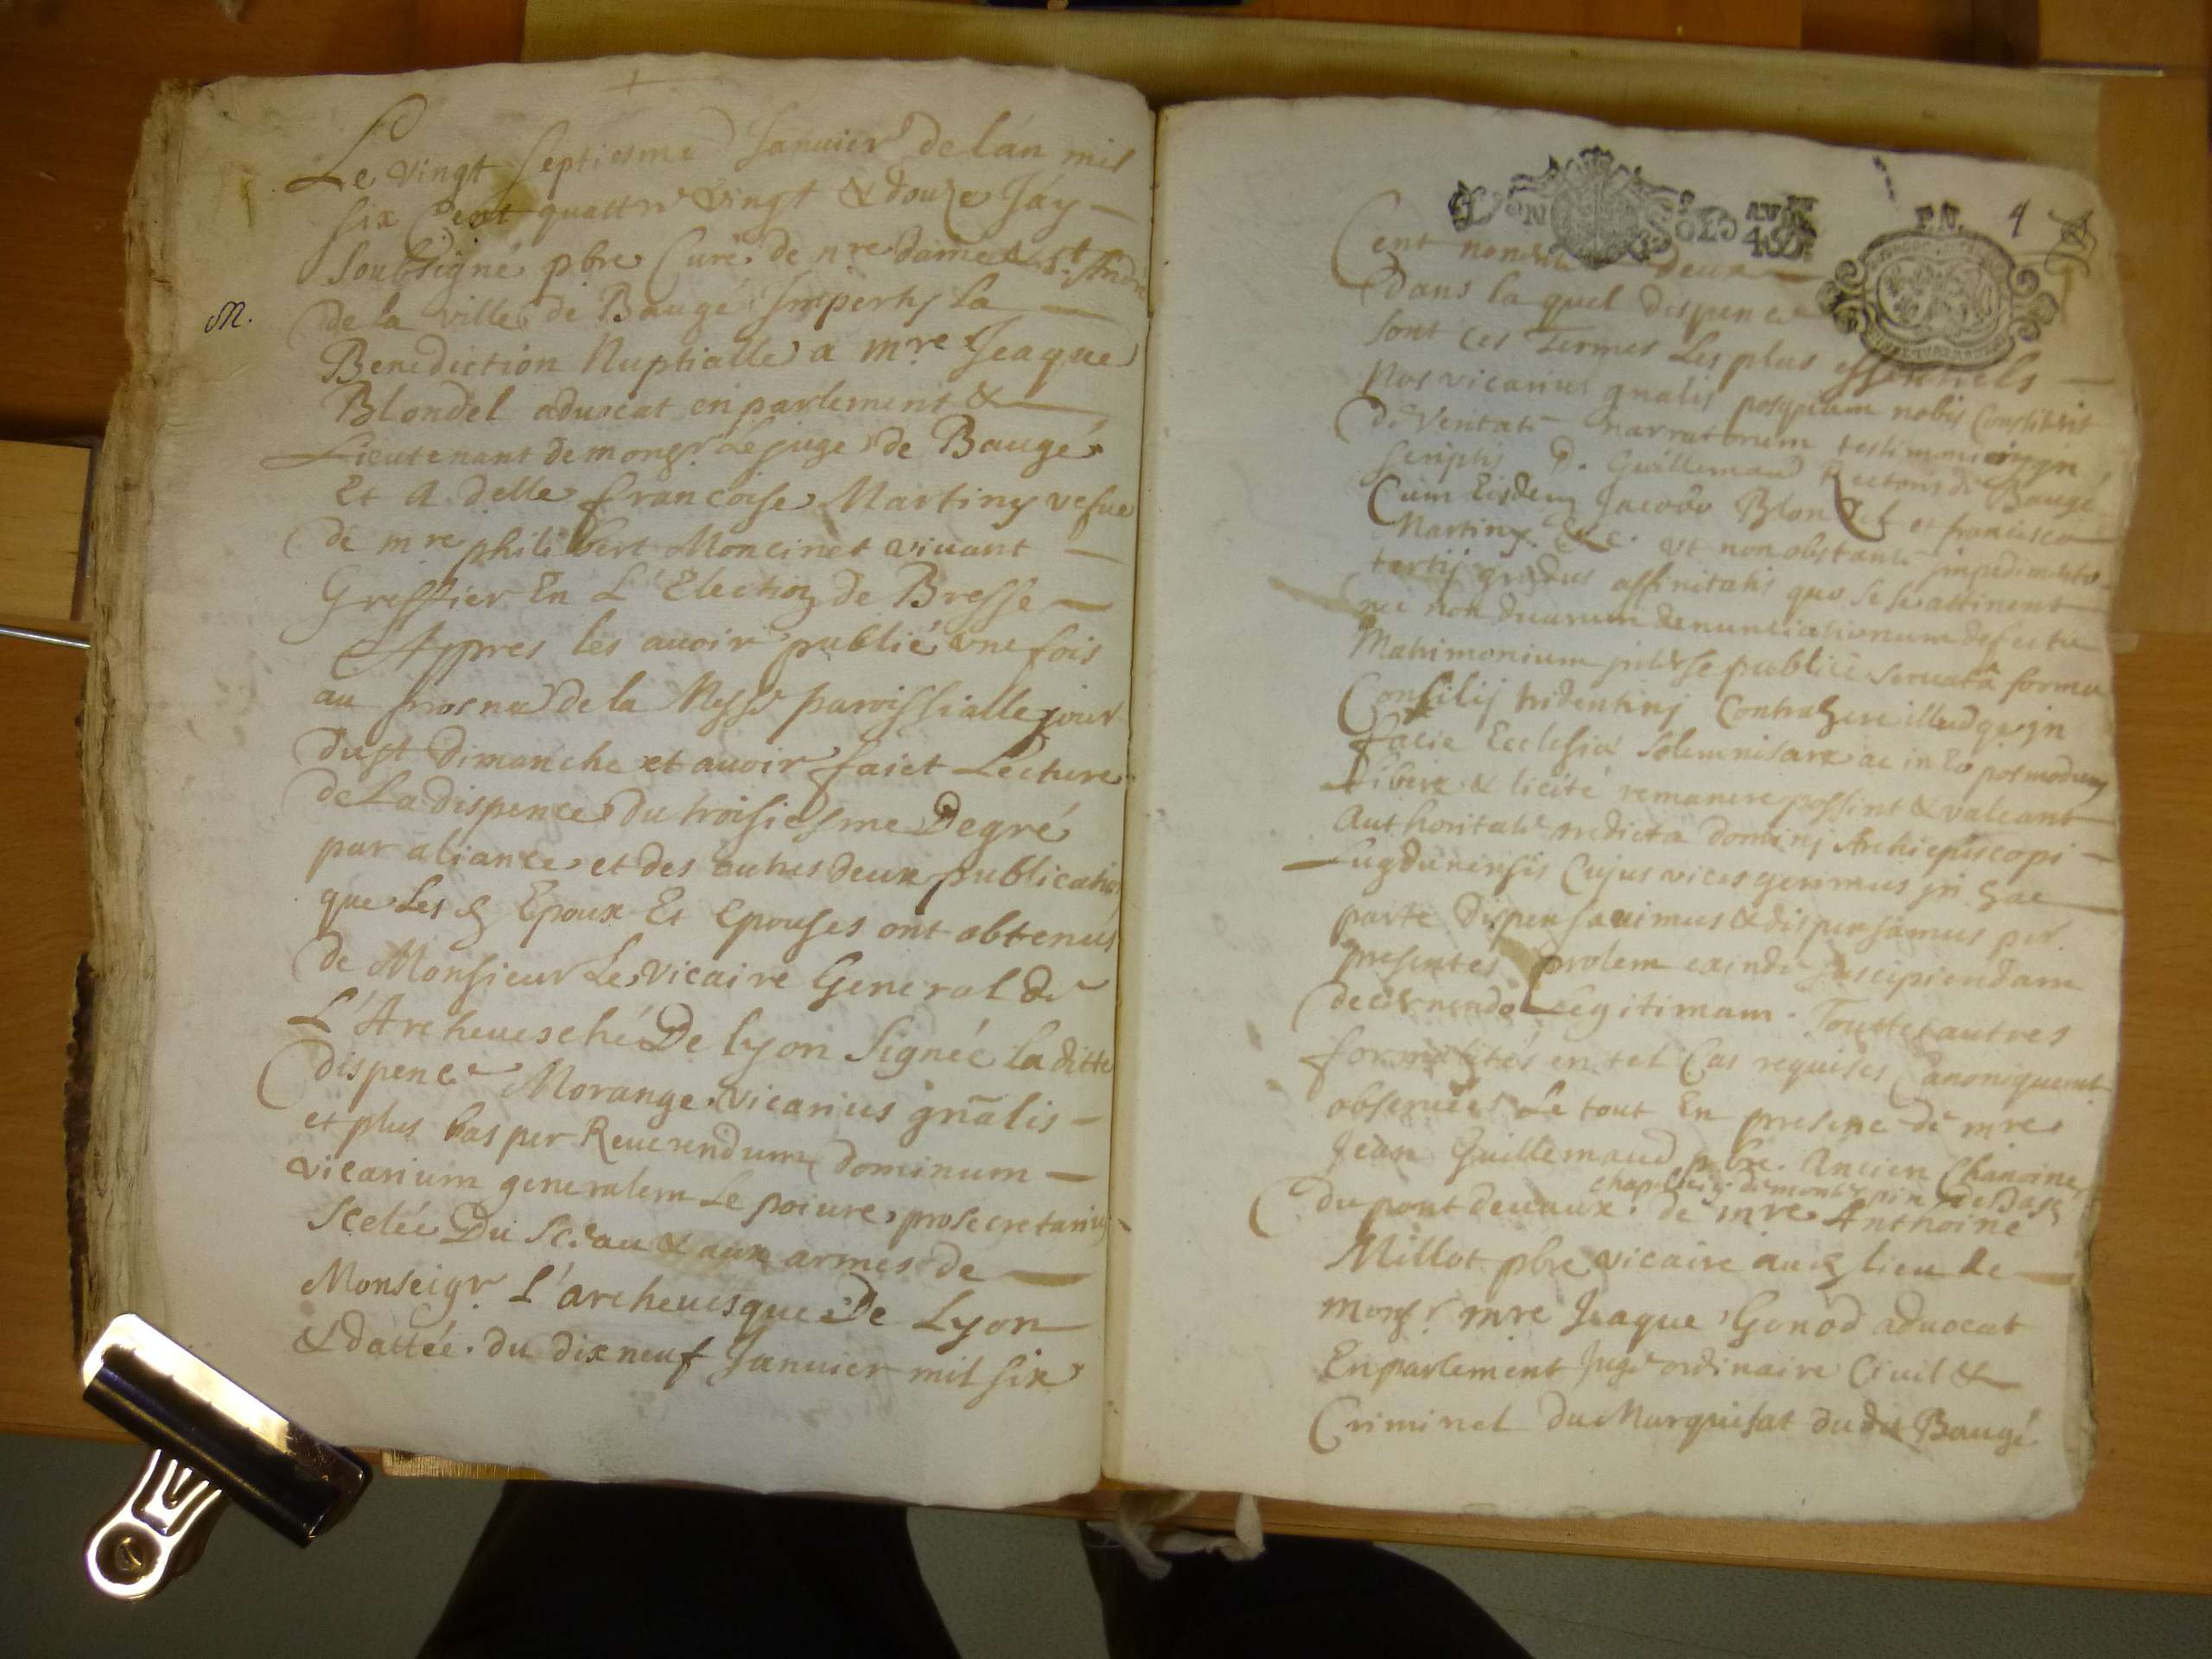 Le vingt septiesme Januier de lan mil
six Cent quattre vingt & douze Jáy
Soubsigné pbre Curé de nre dame & St. Andre
M.
de la ville de Baugé Imperty La
Benediction Nuptialle a mre Jeaque
Blondel aduocat en parlement &
Lieutenant de monsr Le Juge de Baugé
Et A delle francoise Martiny vefue
de mre philibert Moncinet viuant
Greffier En L'Election de Bresse
Appres les auoir publié vne fois
au prosne de la Messe paroissialle jour
dust dimanche et auoir faict Lecture
de La dispence du troisiesme Degré
par aliance et des autres deux publication
que Les Epoux Et Epouses ont obtenus
de Monsieur Le Vicaire General de
L'Archeuesché De lyon Signée la ditte
dispence Morange vicarius gnãlis
et plus bas per Reuerendum dominum
vicarium generalem Le poiure, prosecretarius
Scelée Du Sceau & aux armes de
Monseigr L'archeuesque De Lyon
& dattée. du dixneuf Januier mil six
LYON 4D.
F.N. 4
Cent nonante deux
Dans la quel dispence
sont ces Termes Les plus essentiels
Nos vicarius gnalis posquam nobis Constitit
de Veritate narratorum testimonio in
scriptis D. Guillemaud Rectoris de Baugé
Cum Eisdem Jacobo Blondel et francisca
Martiny &c. vt non obstante impedimento
tertij gradus affinitatis quo se se attinent
nec non duarum denunciationum defectu
Matrimonium inter se publicè seruatâ forma
Consilij tridentinj Contrahere illudque jn
facie Ecclesiæ solemnisare ac in Eo posmodum
Liberè & licitè remanere possint & valeant
Authoritate predicta dominj Archiepiscopi
Lugdunensis Cujus vices gerimus jn hac
parte dispensauimus & dispensamus per
presentes prolem exinde suscipiendam
decernendo Legitimam. Touttes autres
formalités en tel Cas requises Canoniquement
obseruées Le tout En presence de mre
Jean Guillemaud pbre. Ancien Chanoine
du pont deuaux. de mre Anthoine
Millot pbre vicaire aud lieu de
monsr. mre Jeaque Gonod aduocat
En parlement Juge ordinaire Ciuil &
Criminel du Marquisat dudit Baugé